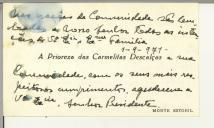 nas orações da Comunidade são lem-
brados a Nosso Senhor todos os
de V. Exª e Exma Família
1-9-971
A Prioreza das Carmelitas Descalças e sua
Comunidade, com os seus mais res-
peitosos cumprimentos, agradecem a
V. Exª Senhor Presidente.
MONTE ESTORIL